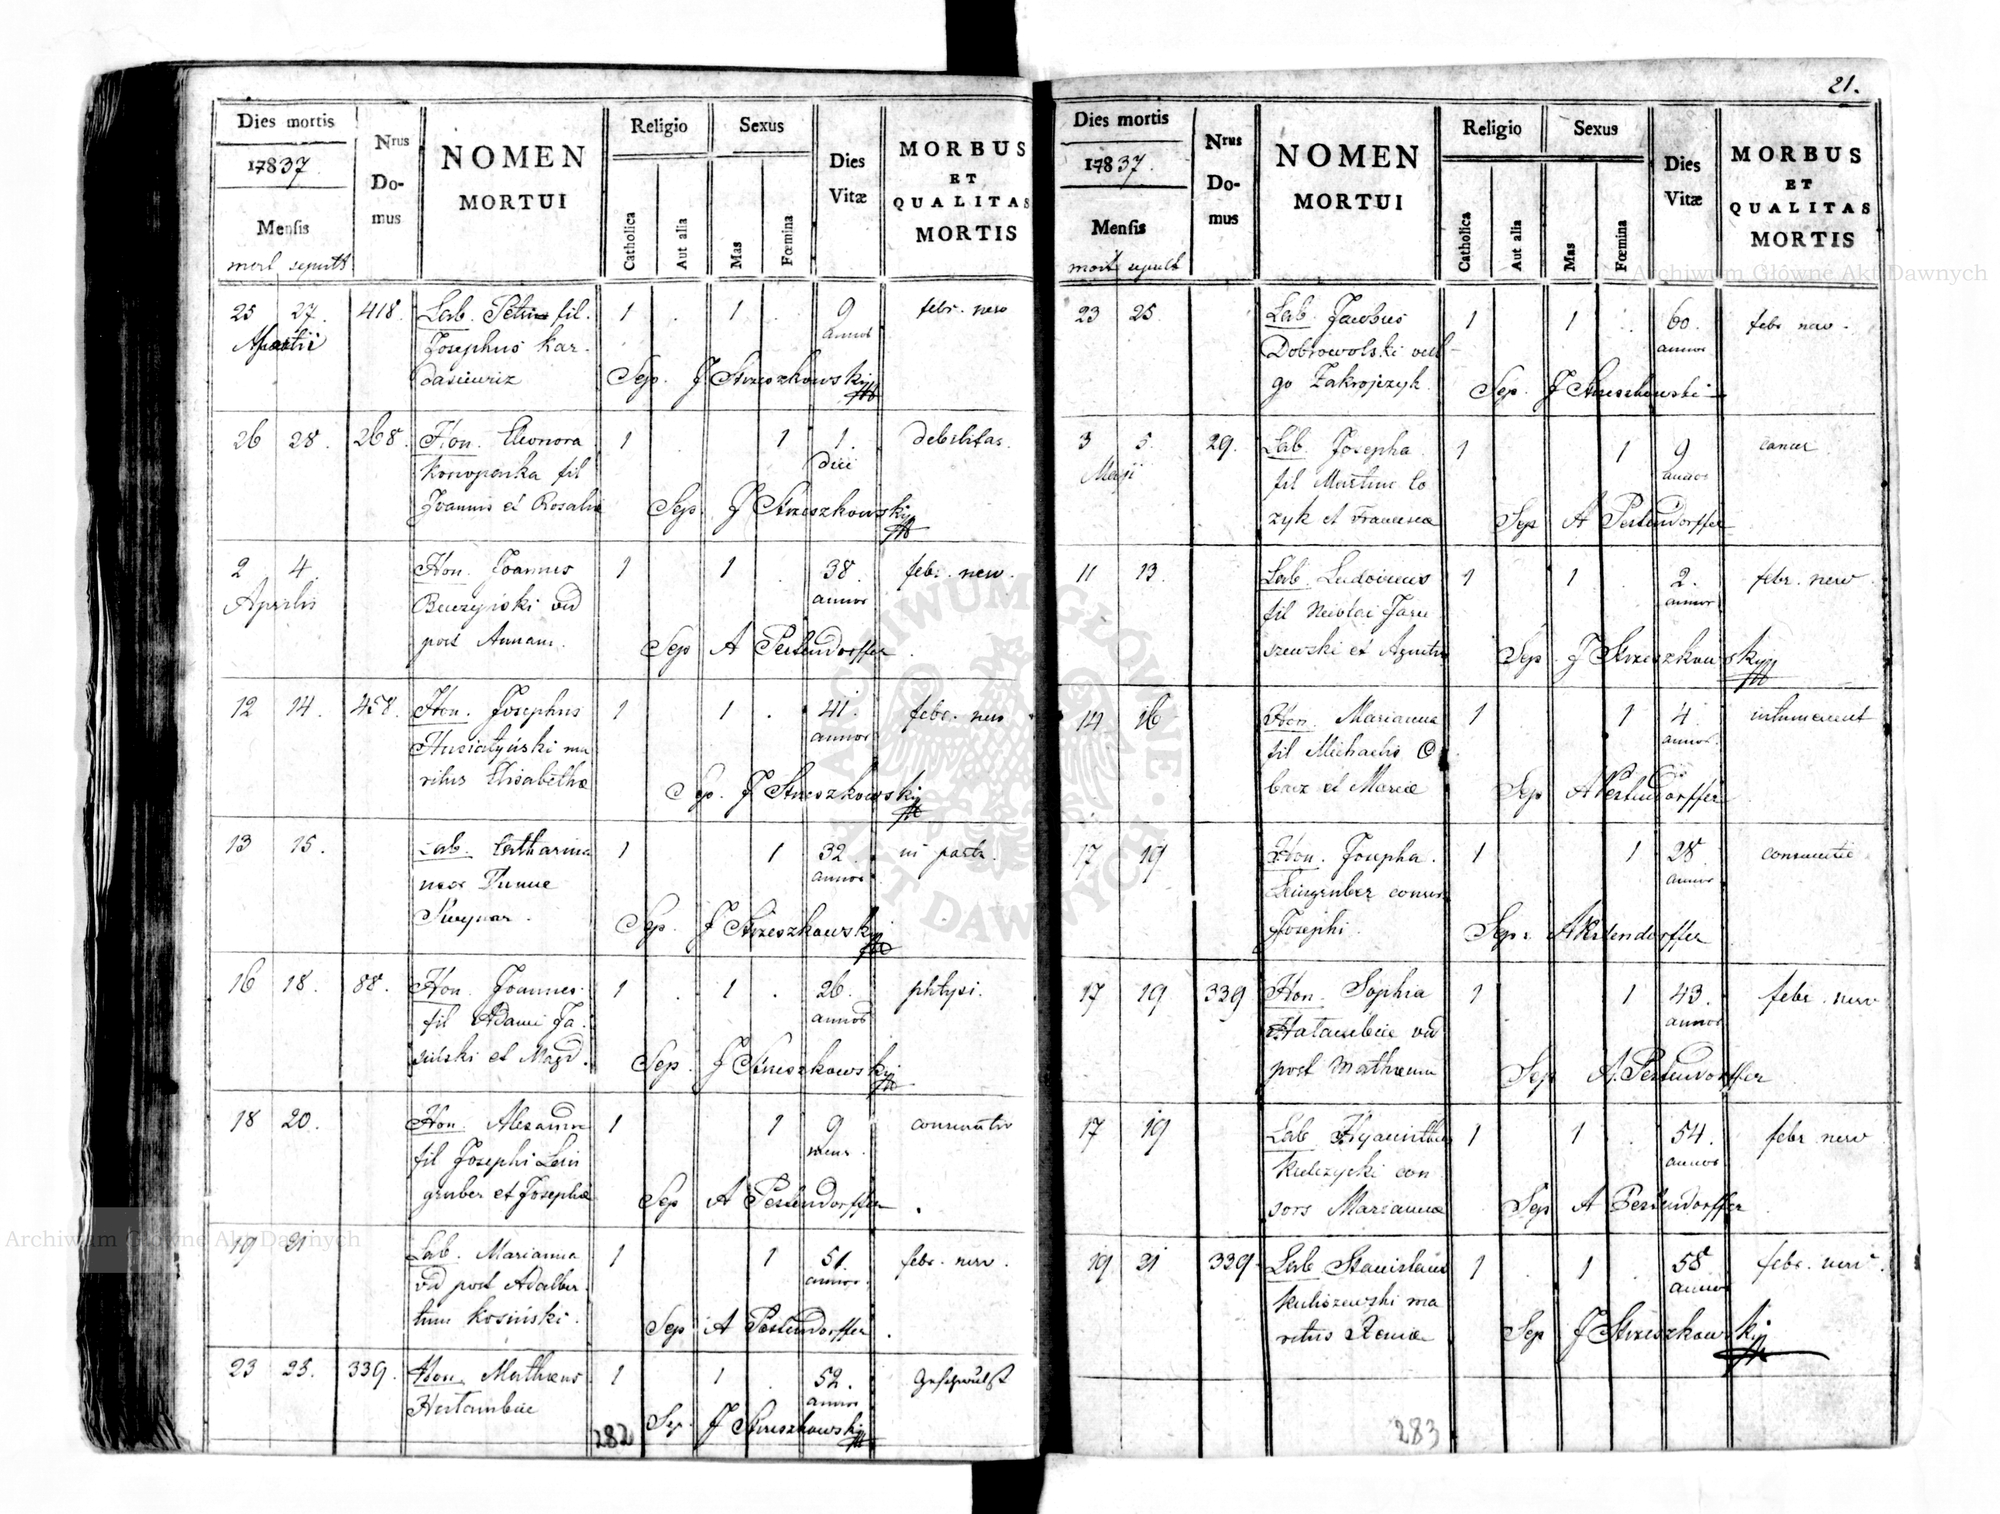 21.
Dies mortis
17837.
Mensis
mort sepults
Nrus
Do-
mus
NOMEN
MORTUI
Religio
Catholica
Aut alia
Sexus
Mas
Fœmina
Dies
Vitæ
MORBUS
ET
QUALITAS
MORTIS
25 27. 418. Lab. Petrus fil. 1 . 1 . 9 febr. nerv
Martii Josephus Kar annor
Sep. J Strzeszkowski
26 28. 268. Hon. Eleonora 1 . 1 1. debilitas.
Konopenka fil diei
Joannis et Rosalia Sep. J Strzeszkowski
2 4 Hon. Joannes 1 1 . 38. febr. nerv.
Aprilis vid annor
post Annam. Sep A Pestendorffer
12 14. 458. Hon. Josephus 1 1 . 41. febr. nerv
Husiatyński ma annor
ritus Elisabetha Sep. J Strzeszkowski
13 15. Lab. Catharina 1 1 32. in partu.
annor
Sep. J Strzeszkowski
16 18. 88. Hon. Joannes 1 . 1 . 26. phtysi.
fil Adami Ja annor
siński et Magd. Sep. J Strzeszkowski
18 20. Hon. Alexander 1 1 9
fil Josephi Lein mens.
gruber et Josepha Sep A Pestendorffer
19 21 Lab. Marianna 1 1 51. febr. nerv.
vid post Adalber annor.
tum Kosiński. Sep A Pestendorffer
23 25. 339. Hon. Mathæus 1 1 . 52. Geschwulst
annor
Sep. J Strzeszkowski
282
Dies mortis
17837.
Mensis
mort sepult
Nrus
Do-
mus
NOMEN
MORTUI
Religio
Catholica
Aut alia
Sexus
Mas
Fœmina
Dies
Vitæ
MORBUS
ET
QUALITAS
MORTIS
23 25. Lab. Jacobus 1 1 . 60. febr nerv.
Dobrowolski vul- annor
go Zakrojczyk. Sep. J Strzeszkowski
3 5 29. Lab. Josepha 1 1 9 cancer
Maji fil Martini Co annor
zyk et Francisca Sep A Pestendorffer
11 13. Lab. Ludovicus 1 1 . 2. febr. nerv.
fil Nicolai Jaru annor
szewski et Agnetis Sep. J Strzeszkowski
14 16 Hon. Marianna 1 1 4.
fil Michaelis annor.
et Maria Sep A Pestendorffer
17 19 Hon. Josepha. 1 1 28
Leingruber consors annor
Josephi. Sep: A Pestendorffer
17 19 339 Hon. Sophia 1 1 43. febr. nerv
vid annor
post Mathæum Sep A. Pestendorffer
17 19 Lab Hyacinthus 1 1 . 54. febr nerv
Kulczycki con annor
sors Marianna Sep A Pestendorffer
19 21 339 Lab Stanislaus 1 . 1 . 58 febr. nerv.
Kuliszewski ma annor
ritus Sep J Strzeszkowski
283
Archiwum Główne Akt Dawnych
Archiwum Główne Akt Dawnych
ARCHIWUM GŁÓWNE AKT DAWNYCH